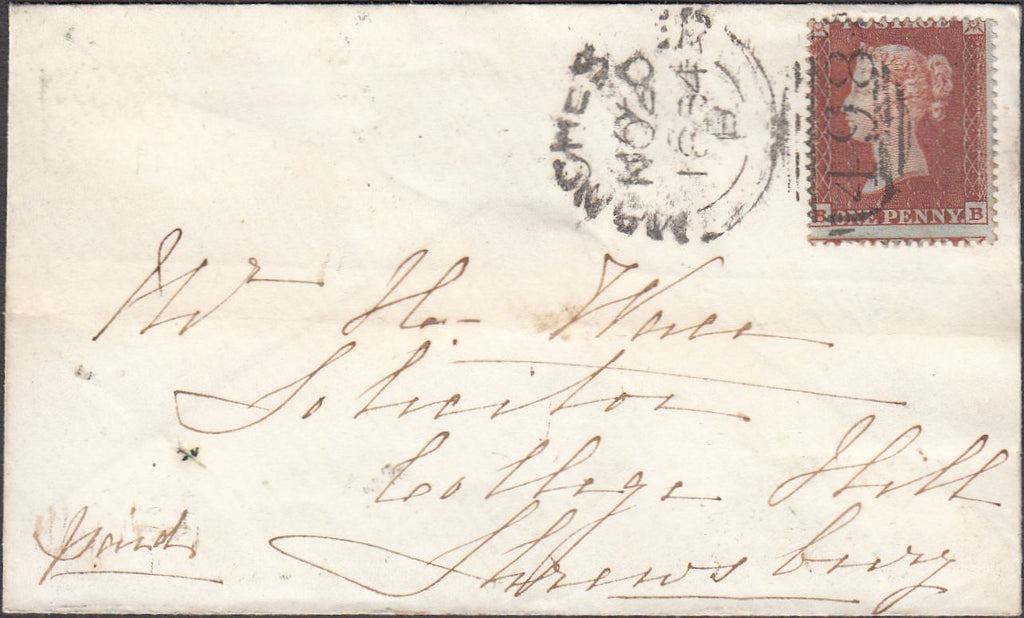 MANCHESTER
NO 20
1854
H
498
POSTAGE
B ONE PENNY. B
Mr H.
Solicitor
College Hill
Shrewsbury
paid